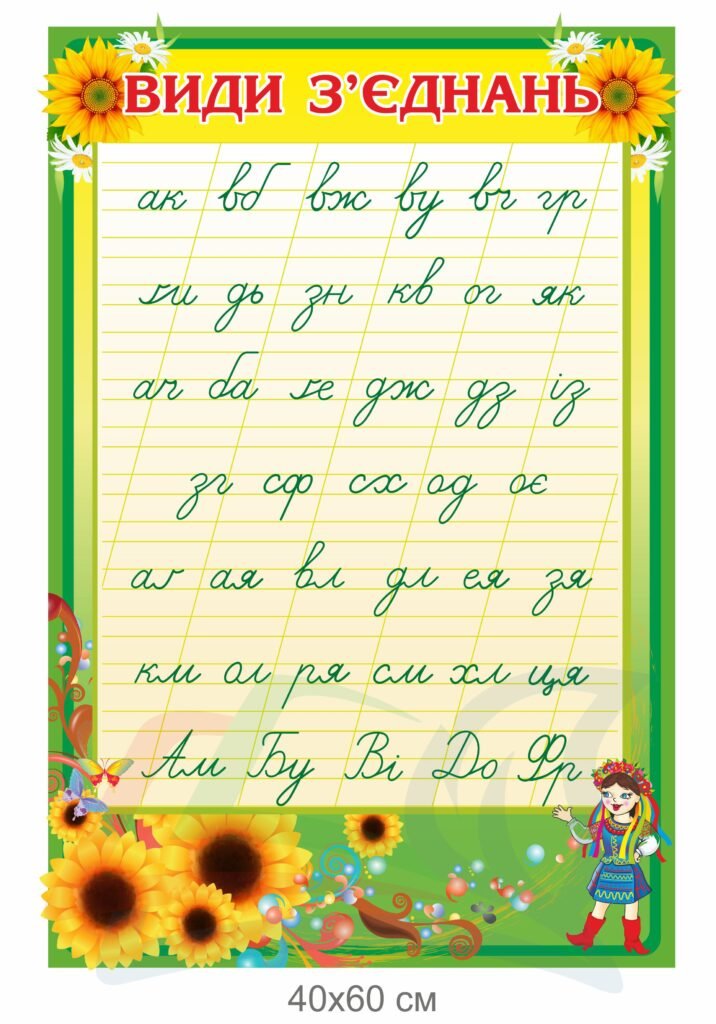 ВИДИ З’ЄДНАНЬ
ак вб вж ву вч гр
ґи дь зн кв ог як
ач ба ґе дж дз із
зг сф сх од оє
аґ ая вл дл ея зя
км ол ря см хл ця
Ам Бу Ві До Фр
40х60 см